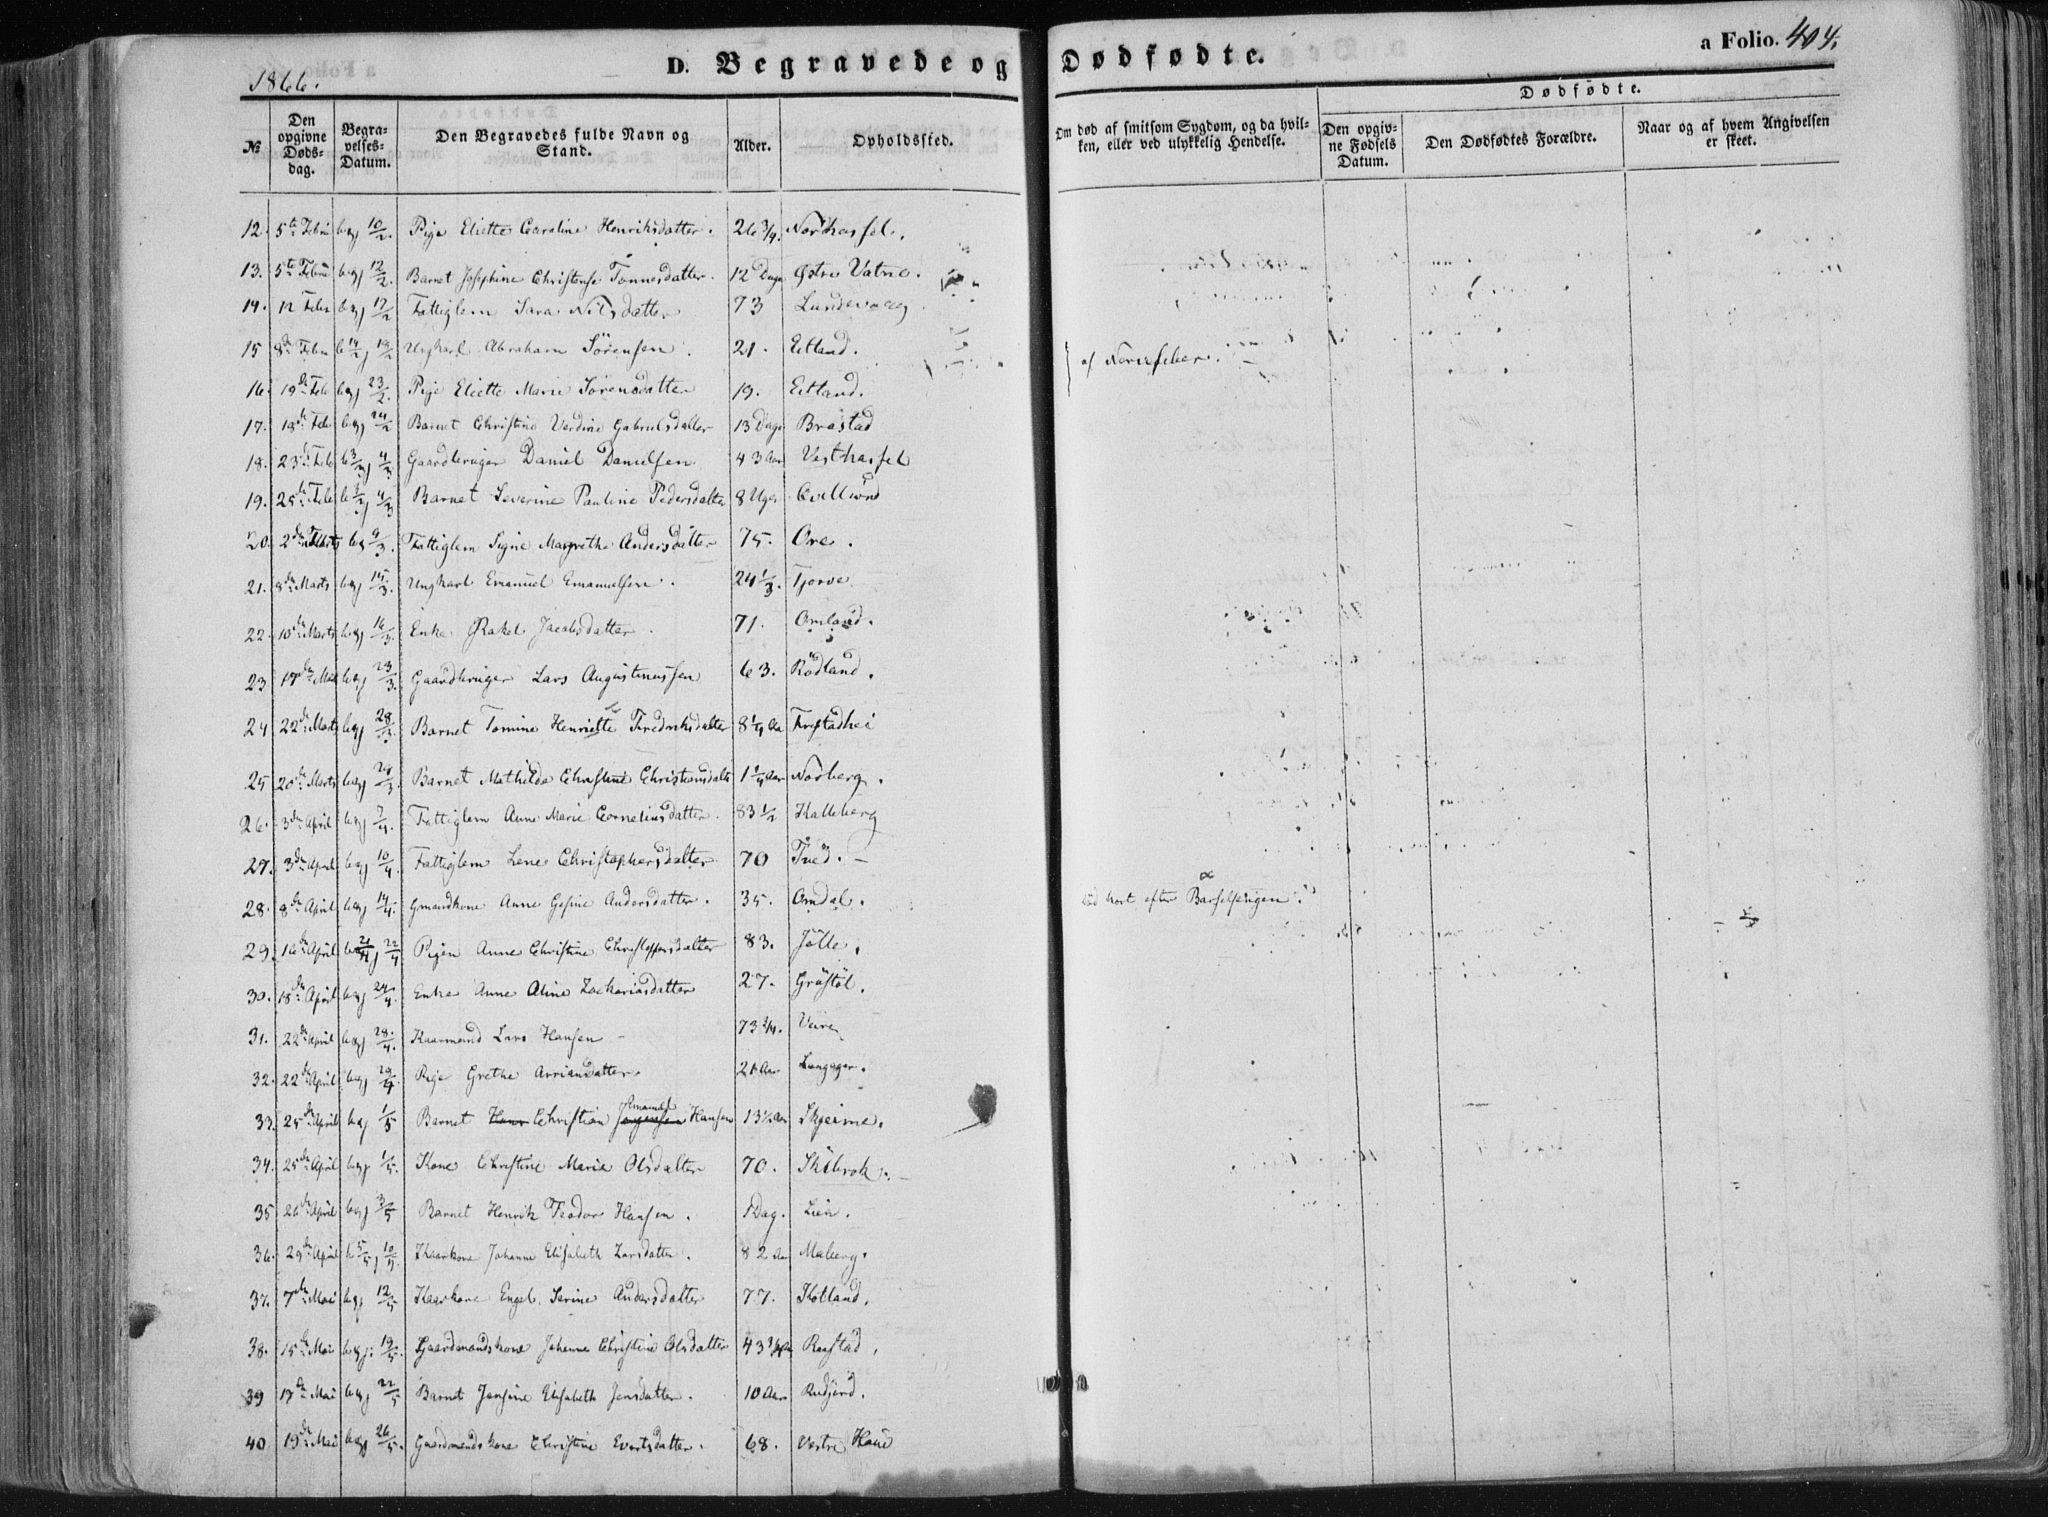 1866.
D. Begravede og Dødfødte.
a Folio. 404.
Dødfødte.
№ Den opgivne Døds-dag. Begra-velses-Datum. Den Begravedes fulde Navn og Stand. Alder. Opholdssted. Om død af smitsom Sygdom, og da hvil-ken, eller ved ulykkelig Hendelse. Den opgiv-ne Fødsels Datum. Den Dødfødtes Forældre. Naar og af hvem Angivelsen er skeet.
12. 5te Febru beg 10/2. Pige Eliette Caroline Henriksdatter. 26 3/4. Norhassel.
13. 5te Febru beg 12/2. Barnet Josephine Christense Tønnesdatter. 12 Dage Østre Vatne.
14. 12 Febr beg 17/2 Fattiglem Sara Nilsdatter 73 Lundevaag
15 8de Febru b 14/2 j 19/2 Ungkarl Abraham Sørensen. 21. Eitland. af Nervefeber.
16. 19de Feb beg 23/2 Pige Eliette Marie Sørensdatter 19. Eitland.
17. 18de Feb beg 24/2 Barnet Christine Verdine Gabrielsdatter 13 Dage Brastad
18. 23de Feb b 3/3 j 4/3 Gaardbruger Daniel Danielsen 43 Aar Vesthassel
19. 25de Feb b 3/3 j 4/3 Barnet Severine Pauline Pedersdatter 8 Uger
20. 2den Marts beg 9/3. Fattiglem Signe Margrethe Andersdatter 75. Ore.
21. 8de Marts beg 15/3. Ungkarl Emanuel Emanuelsen. 24 1/3. Tjorve
22. 10de Marts beg 16/3. Enke Rakel Jacobsdatter. 71. Omland.
23 17de Mar beg 23/3. Gaardbruger Lars Augustinussen 63. Rødland.
24 22de Marts beg 28/3. Barnet Tomine Henriette Fredriksdatter 8 1/4 Aa Frestadhei
25 20de Marts beg 29/3. Barnet Mathilde Christine Christensdatt 1 1/4 Aar Norberg.
26. 3de April beg 7/4. Fattiglem Anne Marie Corneliusdatter. 83 1/2 Halleberg
27. 3de April beg 10/4 Fattiglem Lene Christophersdatter 70 Tued.
28. 8de April beg 14/4. Gmandkone Anne Gesine Andersdatter. 35. Omdal. død kort efter Barselsengen.
29. 16de April b 21/4 j 22/4 Pigen Anne Christine Christoffersdatter 83. Jølle.
30. 18de April beg 24/4. Enke Anne Oline Zachariasdatter 27. Grøstøl.
31. 22de April beg 28/4. Kaarmand Lars Hansen 73 3/4. Vere
32. 22de April beg 29/4. Pige Grethe Arriansdatter. 21 Aar Langager.
33. 25de April beg 1/5 Barnet Hans Christian Jørgensen Emanuel Hansen 13 1/2 Aar Skjeime.
34. 25de April beg 1/5. Kone Christine Marie Olsdatter 70. Skibrok.
35 26de April beg 3/5 Barnet Henrik Teodor Hansen. 1 Dag. Lien.
36. 29de April b 5/5 j 10/5 Kaarkone Johanne Elisabeth Larsdatter. 82 Aar Maberg.
37. 7de Mai beg. 12/5 Kaarkone Engel Serine Andersdatter 77. Kolland.
38. 15de Mai beg: 19/5. Gaardmandskone Johanne Christine Olsdatter 43 3/4 Aar Rastad.
39 17de Mai beg 22/5 Barnet Jensine Elisabeth Jensdatter. 10 Aar Rudjord.
40 19de Mai beg 26/5. Gaardmandskone Christine Evertsdatter. 68. Vestre Haue